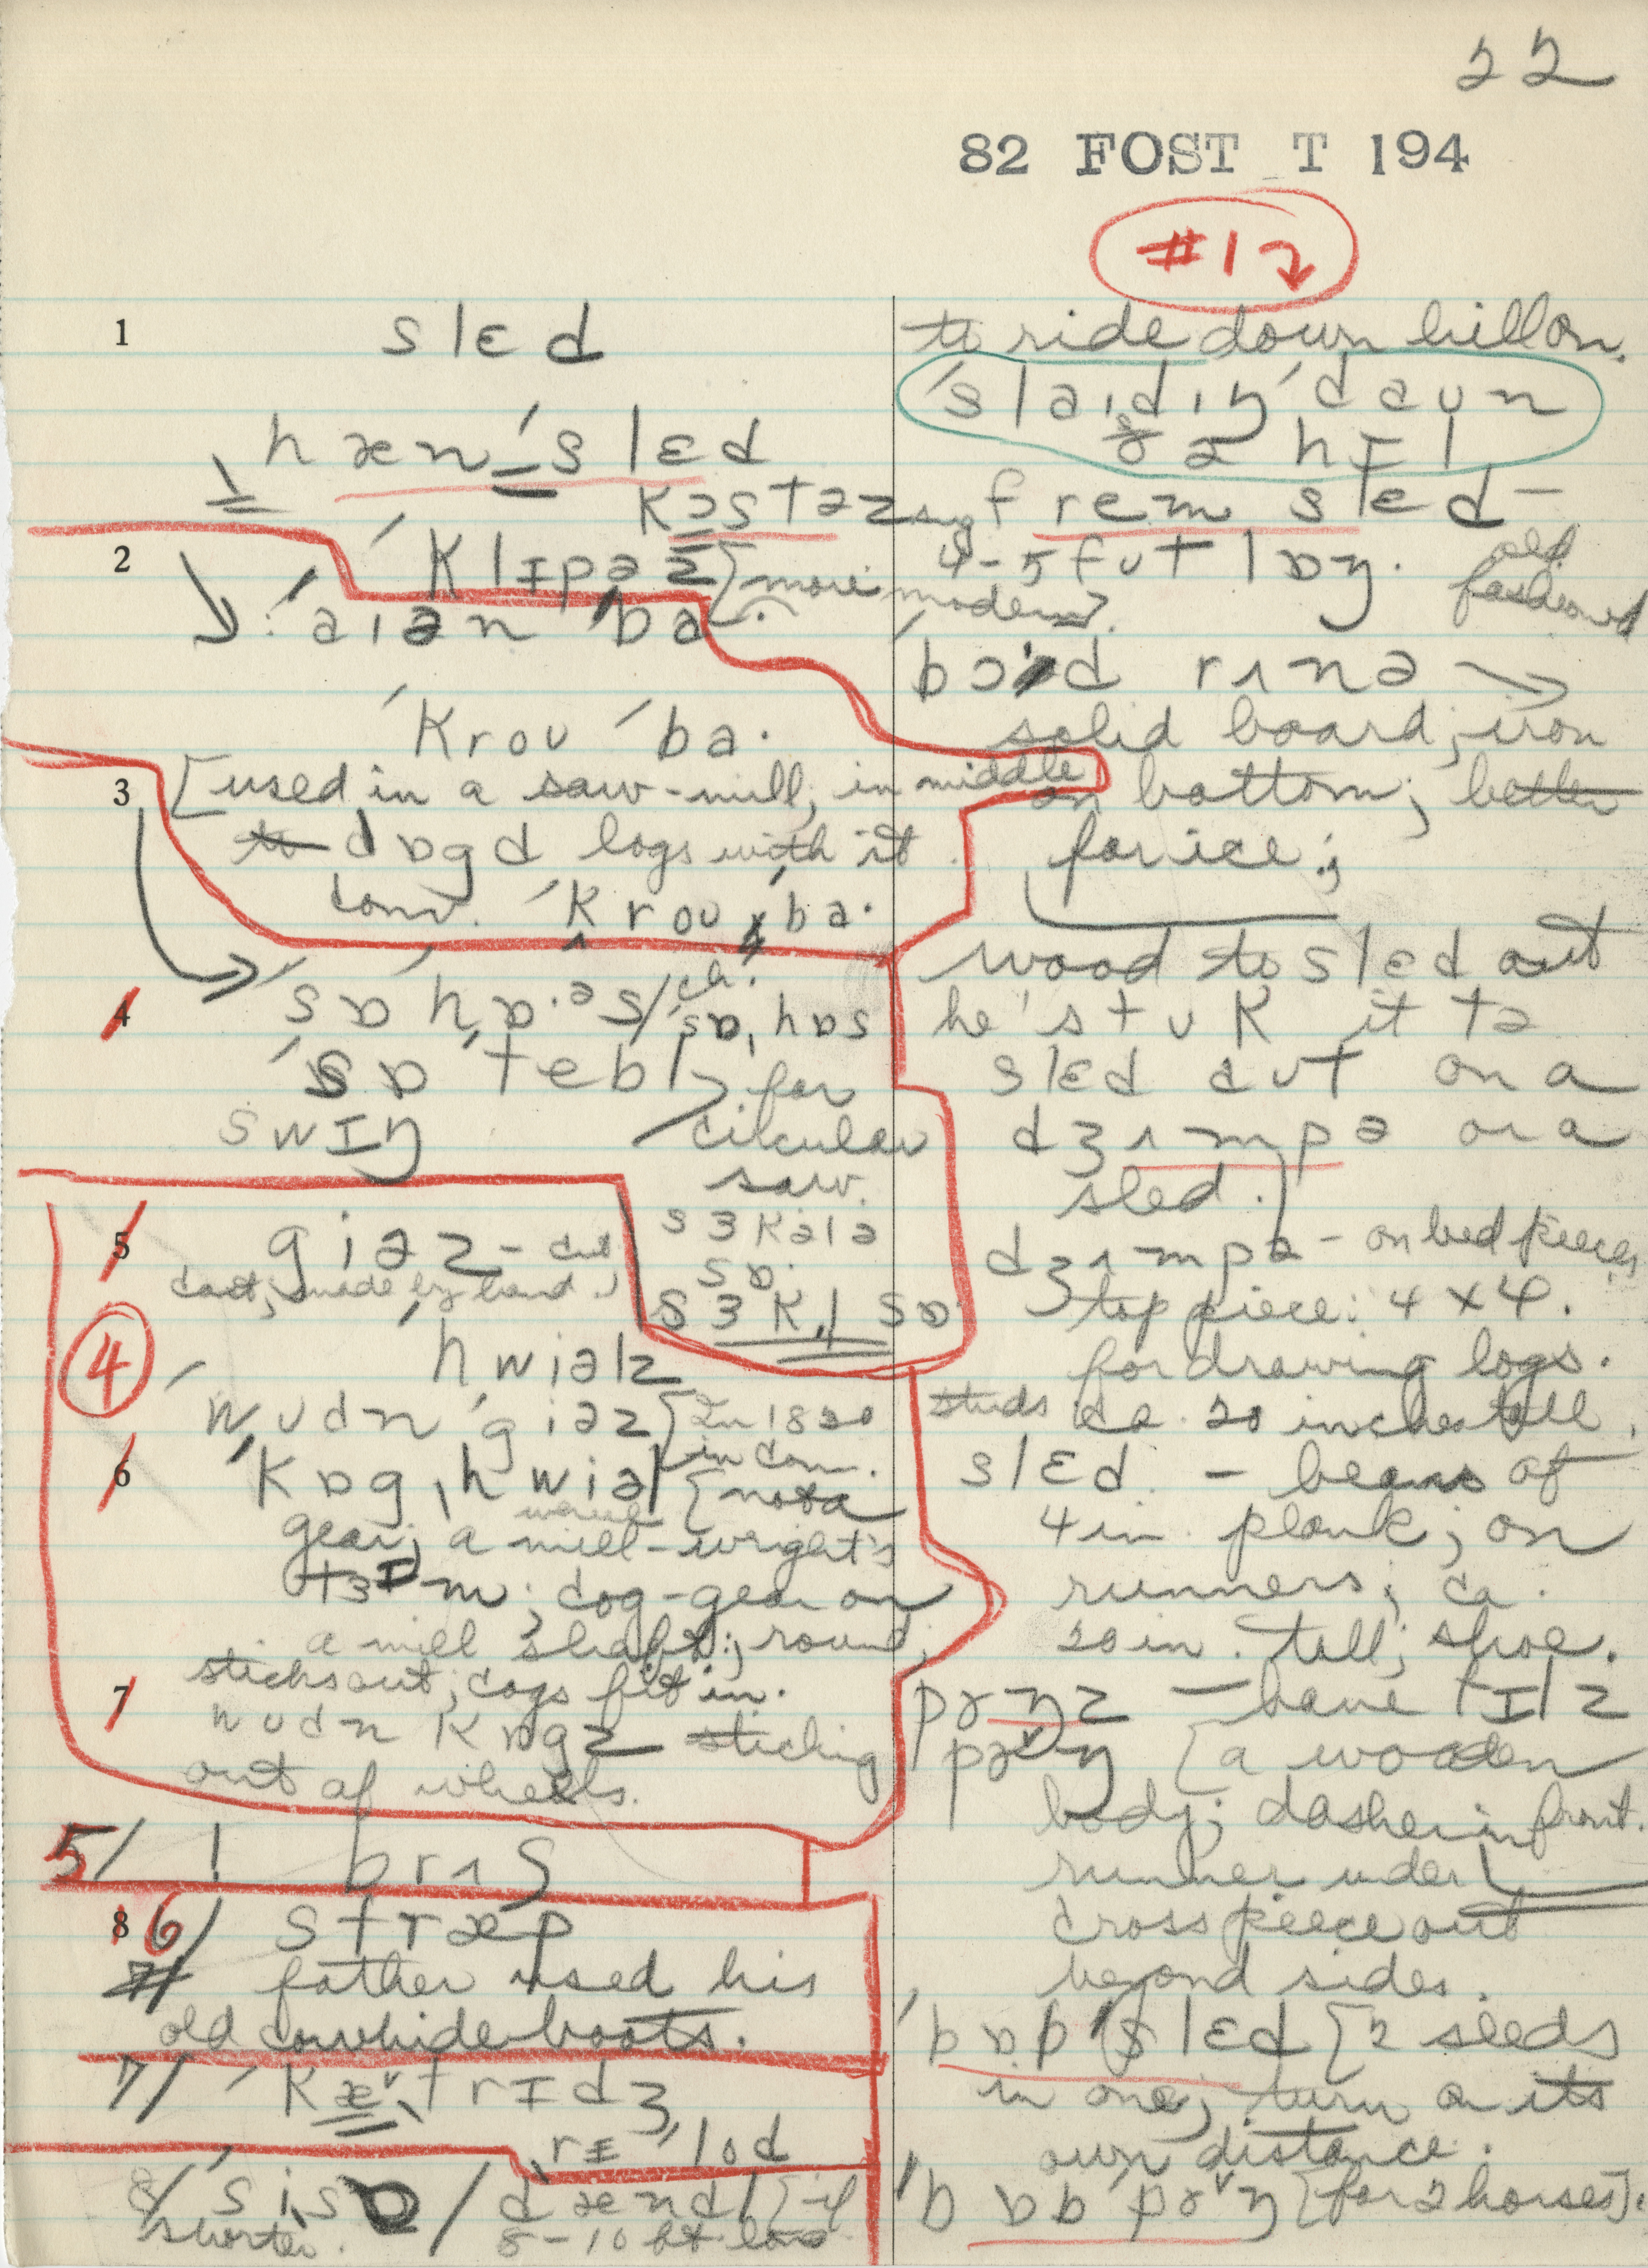 22
82 FOST T 194
#1
1 slɛd
hæn ˈslɛd
kɔstəz
2 ˈklɪpəz [more modern].
ˈaiən ˈba·
ˈkrou ˈba·
3 [used in a saw-mill; in middle
to dɒgd logs with it
conn. ˈkrou ˌba·
4 ˈsɒ hɒ·əs / ˈsɒˌhɒs
ˈsɒ tebl
swɪŋ
for
circular
saw.
sɜkələ
sɒ·
sɜkl sɒ
5 giəz -
cast; made by hand
4
ˈhwiəlz
ˈwudn ˈgiəz [In 1820
in conn.
6 ˈkɒgˌhwiəl [not a
gear; a mill-wright's
tɜm; cog-gear on
a mill shaft; round;
sticks out; cogs fit in.
7 wudn kɒgz sticking
out of wheels.
5/ ! brʌʃ
8 6/ stræp
7/ father used his
old cowhide boots.
7/ ˈkætrɪdʒ
rɪˈlod
8/ ˈsisɒ / dændl [if
shorter. 8-10 ft long
to ride down hill on.
ˈslaidiŋ ˈdaun
ðə hɪl
frem slɛd –
4-5 fut lɒŋ. old
fashioned
ˈbɔ·d rʌnə
solid board; iron
on bottom; better
for ice;
wood to slɛd out
he stuk it tə
slɛd aut on a
dʒʌmpə or a
sled.
dʒʌmpə - on bed pieces
top piece: 4 x 4.
for drawing logs.
studs ca. 20 inches tall.
slɛd - beams of
4 in. plank; on
runners; ca.
20 in. tall; shoe.
pɤŋz – have tɪlz
pɤŋ [a wooden
body; dasher in front.
runner under
cross piece out
beyond sides.
ˈbɒb ˈslɛd [2 sleds
in one; turn on its
own distance.
ˈbɒb ˈpɤŋ [for 2 horses].